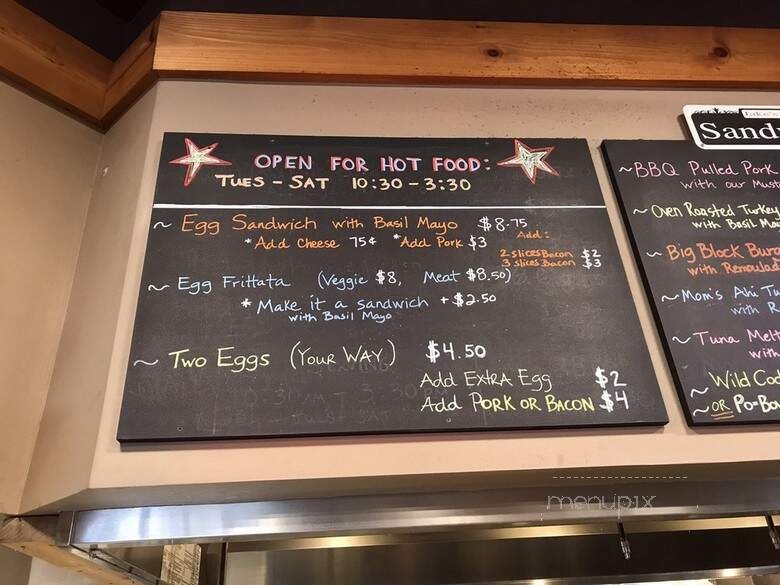 OPEN FOR HOT FOOD:
TUES - SAT 10:30 - 3:30
~ Egg Sandwich with Basil Mayo $8.75
* Add Cheese 75¢ * Add Pork $3
Add:
2 slices Bacon $2
3 slices Bacon $3
~ Egg Frittata (Veggie $8, Meat $8.50)
* Make it a sandwich + $2.50
with Basil Mayo
~ Two Eggs (Your Way) $4.50
Add Extra Egg $2
Add Pork or Bacon $4
Sand
~ BBQ Pulled Pork
with our Must
~ Oven Roasted Turkey
with Basil
~ Big Block Burg
with Remoulad
~ Mom's Ahi Tu
with R
~ Tuna Melt
with
~ Wild Cod
~ OR Po-Bo
menupix